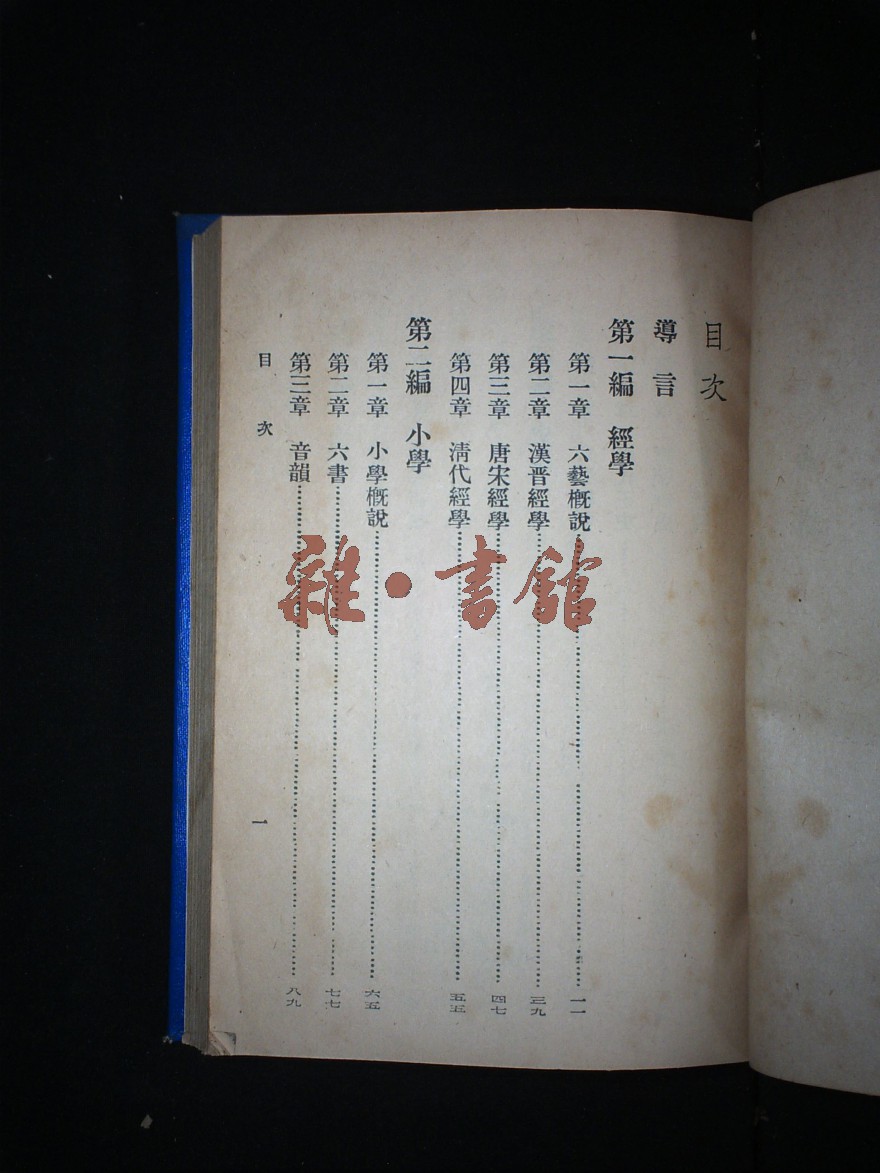 目次
導言
第一編 經學
第一章 六藝概說 一一
第二章 漢晉經學 三九
第三章 唐宋經學 四七
第四章 清代經學 五五
第二編 小學
第一章 小學概說 六五
第二章 六書 七七
第三章 音韻 八九
目次 一
雜·書館